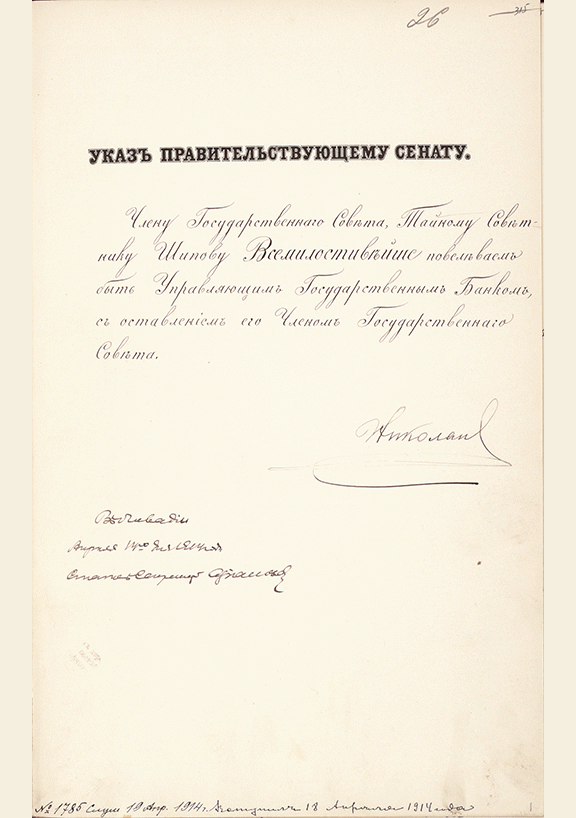 26
315
УКАЗЪ ПРАВИТЕЛЬСТВУЮЩЕМУ СЕНАТУ.
Члену Государственнаго Совѣта, Тайному Совѣт-
нику Шипову Всемилостивѣйше повелѣваемъ
быть Управляющимъ Государственнымъ Банкомъ,
съ оставленіемъ его Членомъ Государственнаго
Совѣта.
Николай
Въ Ливадіи
Апрѣля 14го дня 1914 года
Статсъ-Секретарь
№ 1785 Слуш 19 Апр. 1914 г. 18 Апрѣля 1914 года
1